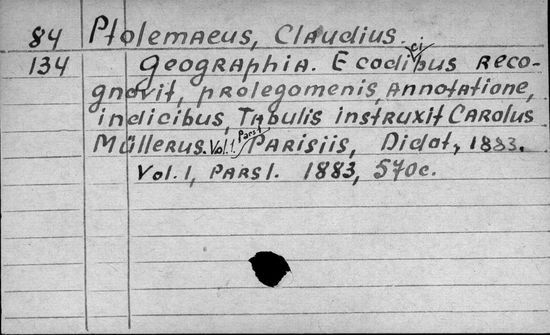 84 Ptolemaeus, Claudius.
134 Geographia. E codicibus reco-
gnovit, prolegomenis, annotatione,
indicibus, tabulis instruxit Carolus
Müllerus. Vol. 1. Pars 1 Parisiis, Didot, 1883.
Vol. 1, Pars 1. 1883, 570c.